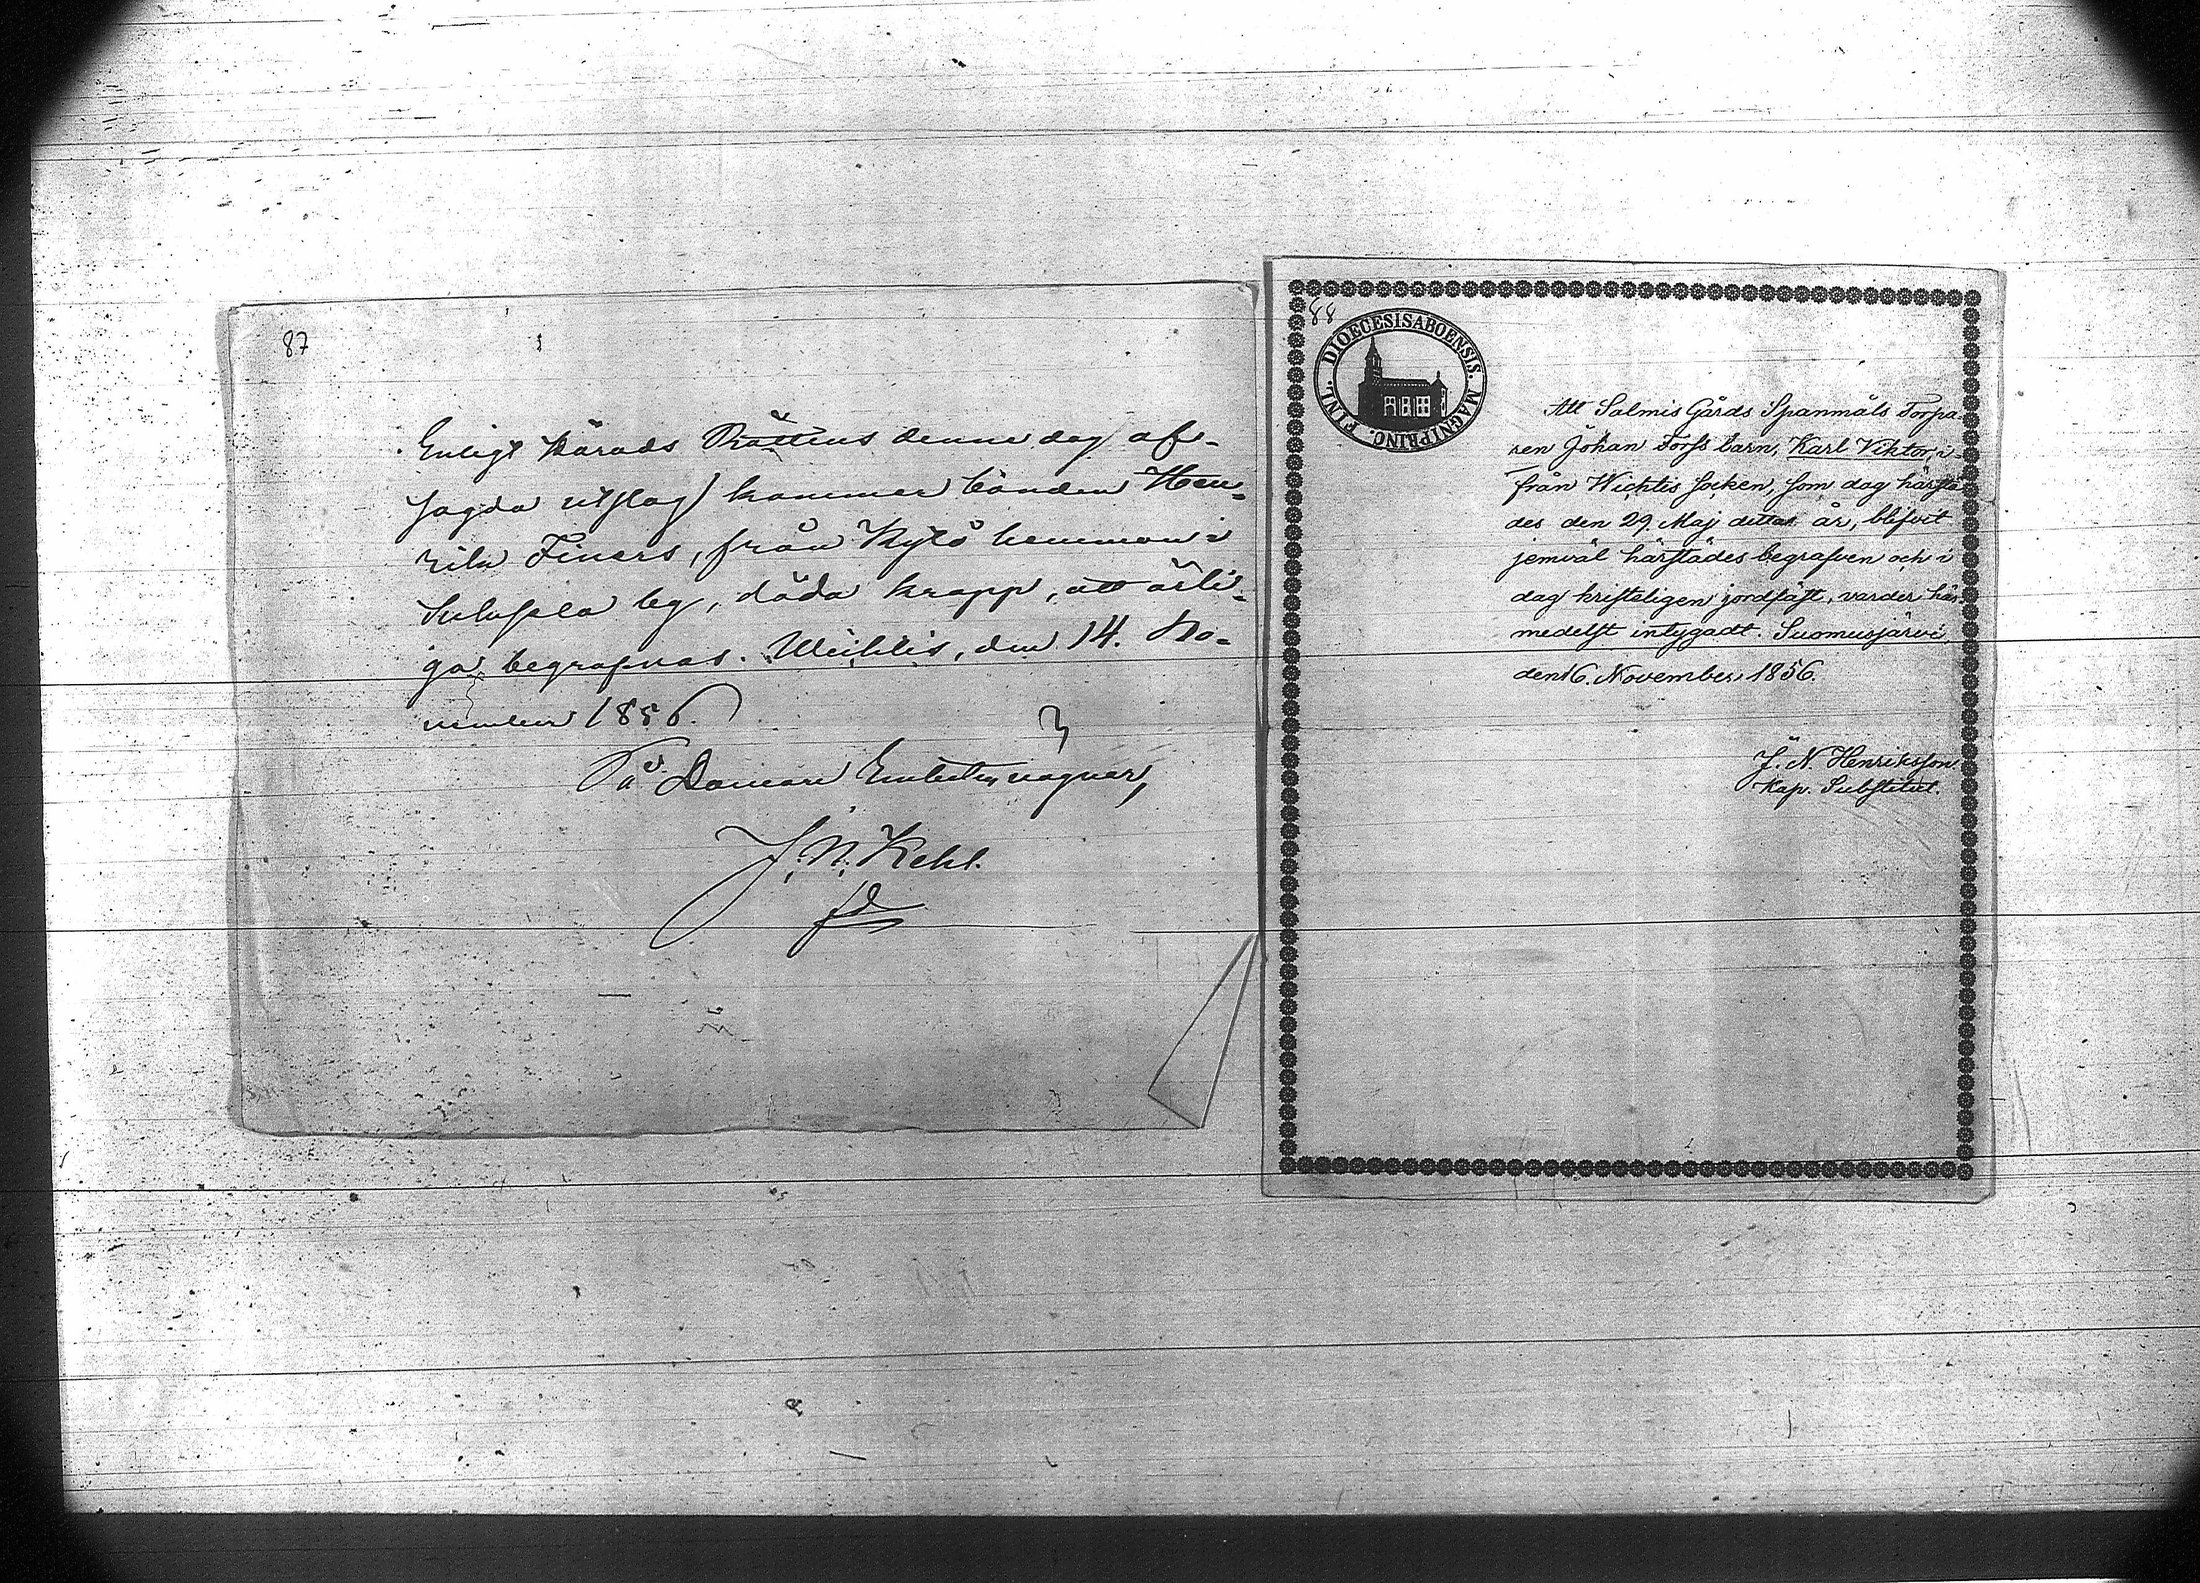 87
Enligt Härads Rättens denne dag af-
sagda utslag kommer bonden Hen-
rik Finers, från Kylö hemman i
by, döda kropp, att ärli-
ga begrafvas. Weichtis, den 14. No-
vember 1856.
På Domare Embetets vägnar,
J. N. Kehl.
88
DIOECESIS ABOENSIS. MAGNI PRINC. FINL.
Att Salmis Gårds Spanmåls Torpa-
ren Johan Forss barn, Karl Viktor, i-
från Wichtis socken, som dog härstä
des den 29. Maj dettas år, blifvit
jemväl härstädes begrafven och i
dag kristeligen jordfäst, varder här-
medelst intygadt. Suomusjärvi,
den 16. November 1856.
J. N. Henriksson
Kap. Substitut.